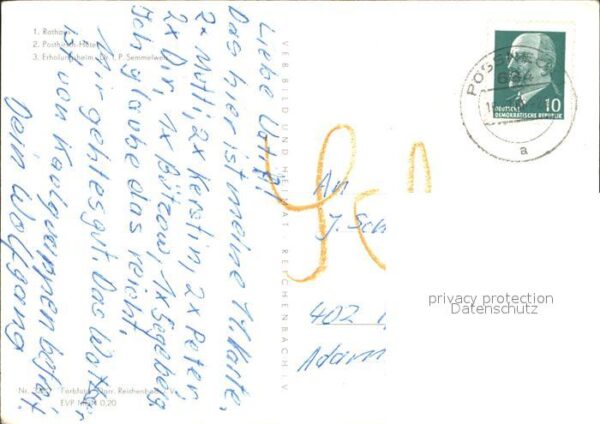 1. Rathaus
2. Posthirsch-Hotel
3. Erholungsheim „Dr. I. P. Semmelweis"
Liebe Vati!
Das hier ist meine 14. Karte.
2x Mutti, 2x Kerstin, 2x Peter
2x Dir, 1x Bützow, 1x Segeberg
Ich glaube das reicht.
Mir geht es gut. Das Wasser
ist von
befreit.
Dein Wolfgang
VEB BILD UND HEIMAT · REICHENBACH I. V.
Nr.
Farbfoto: Darr, Reichenbach i. V.
EVP MDN 0,20
PÖSSNECK
a
10
DEUTSCHE
DEMOKRATISCHE REPUBLIK
An
J. Sch
402
Adam
privacy protection
Datenschutz